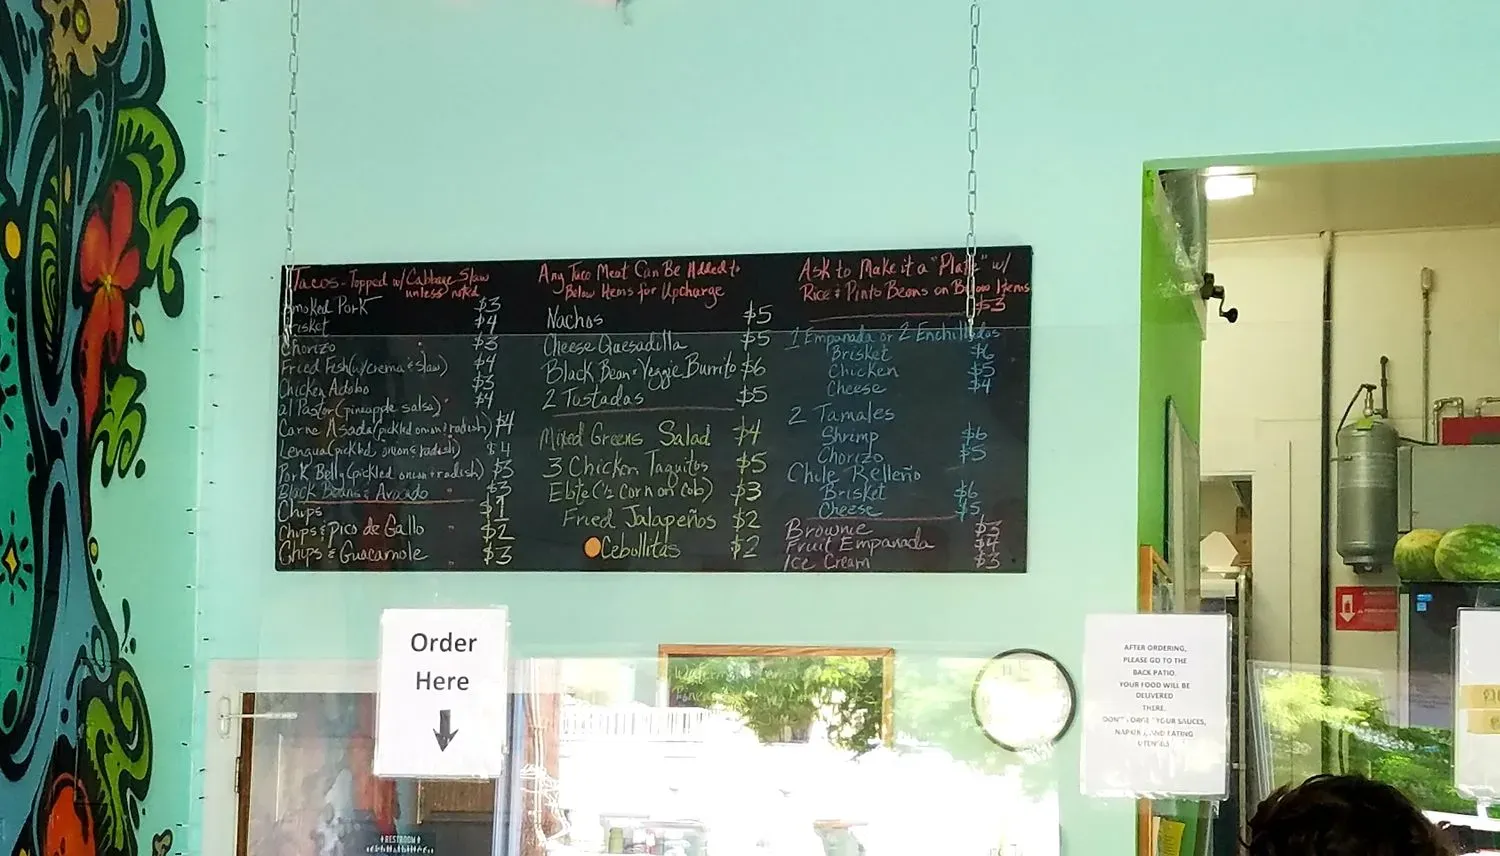 Tacos - Topped w/ Cabbage Slaw
unless noted
Smoked Pork $3
Brisket $4
Chorizo $3
Fried Fish (w/crema & slaw) $4
Chicken Adobo $3
al Pastor (pineapple salsa) $4
Carne Asada (pickled onion + radish) $4
Lengua (pickled onion & radish) $4
Pork Belly (pickled onion + radish) $3
Black Beans & Avocado $3
Chips $1
Chips & Pico de Gallo $2
Chips & Guacamole $3
Any Taco Meat Can Be Added to
Below Items for Upcharge
Nachos $5
Cheese Quesadilla $5
Black Bean & Veggie Burrito $6
2 Tostadas $5
Mixed Greens Salad $4
3 Chicken Taquitos $5
Elote (½ corn on cob) $3
Fried Jalapeños $2
Cebollitas $2
Ask to Make it a "Plate" w/
Rice & Pinto Beans on Below Items
$3
1 Empanada or 2 Enchilladas
Brisket $6
Chicken $5
Cheese $4
2 Tamales
Shrimp $6
Chorizo $5
Chile Relleño
Brisket $6
Cheese $5
Brownie $3
Fruit Empanada $4
Ice Cream $3
Order
Here
AFTER ORDERING,
PLEASE GO TO THE
BACK PATIO.
YOUR FOOD WILL BE
DELIVERED
THERE.
DON'T FORGET YOUR SAUCES,
NAPKINS, AND EATING
UTENSILS
RESTROOM